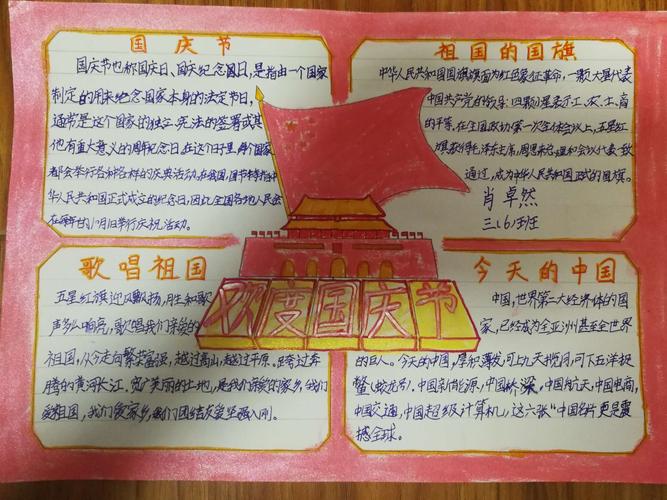 国庆节
国庆节也称国庆日、国庆纪念日,是指由一个国家
制定的用来纪念国家本身的法定节日,
通常是这个国家的独立、宪法的签署或其
他有重大意义的周年纪念日。在这个日子里,每个国家
都会举行各种各样的庆祝活动。在我国,国节
华人民共和国正式成立的纪念日,因此,全国各地人民会
在每年的10月1日举行庆祝活动。
祖国的国旗
中华人民共和国国旗旗面为红色象征革命,一颗大星代表
中国共产党的领导,四颗小星表示工、农、士、商
的平等。在全国政协第一次全体会议上,五星红
旗获得毛泽东主席,周恩来总理和会议代表一致
通过,成为中华人民共和国正式的国旗。
肖卓然
三(6)班
欢度国庆节
歌唱祖国
五星红旗迎风飘扬,胜利歌
声多么响亮,歌唱我们亲爱的
祖国,从今走向繁荣富强,越过高山,越过平原。跨过奔
腾的黄河长江,宽广美丽的土地,是我们亲爱的家乡,我们
爱祖国,我们爱家乡,我们团结友爱坚强入刚。
今天的中国
中国,世界第二大经济体的国
家,已经成为全亚洲甚至全世界
的巨人。今天的中国,厚积薄发,可上九天揽月,可下五洋捉
鳖(蛟龙号)。中国新能源,中国桥梁,中国航天,中国电商,
中国交通,中国超级计算机,这六张“中国名片”更是震
撼全球。